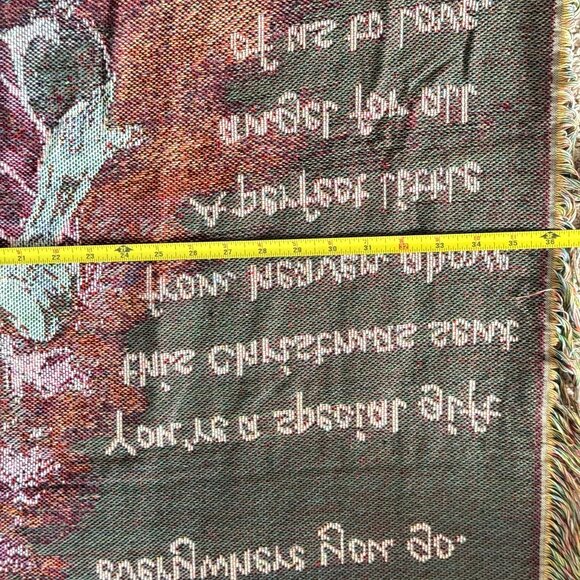 everywhere you go.
You're a special gift
this Christmas sent
from heaven above
A perfect little
angel for all
of us to love.
21 22 23 24 25 26 27 28 29 30 31 32 33 34 35 36